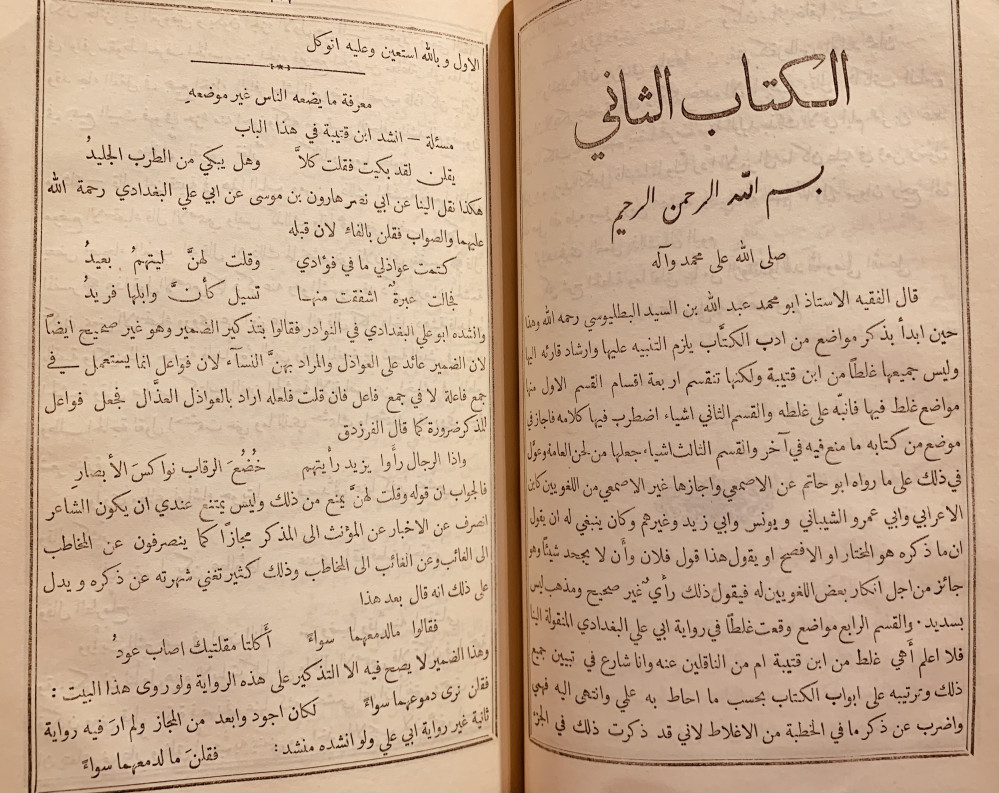 الكتاب الثاني
بسم الله الرحمن الرحيم
صلى الله على محمد وآله
قال الفقيه الاستاذ ابو محمد عبد الله بن السيد البطليوسي رحمه الله وهذا
حين ابدأ بذكر مواضع من ادب الكتَّاب يلزم التنبيه عليها وارشاد قارئه اليها
وليس جميعها غلطاً من ابن قتيبة ولكنها تنقسم اربعة اقسام القسم الاول منها
مواضع غلط فيها فانبّه على غلطه والقسم الثاني اشياء اضطرب فيها كلامه فاجاز في
موضع من كتابه ما منع فيه في آخر والقسم الثالث اشياء جعلها من لحن العامة وعوَّل
في ذلك على ما رواه ابو حاتم عن الاصمعي واجازها غير الاصمعي من اللغويين كابن
الاعرابي وابي عمرو الشيباني ويونس وابي زيد وغيرهم وكان ينبغي له ان يقول
ان ما ذكره هو المختار او الافصح او يقول هذا قول فلان وأن لا يجحد شيئاً وهو
جائز من اجل انكار بعض اللغويين له فيقول ذلك رأيٌ غير صحيح ومذهب ليس
بسديد. والقسم الرابع مواضع وقعت غلطاً في رواية ابي علي البغدادي المنقولة الينا
فلا اعلم أهي غلط من ابن قتيبة ام من الناقلين عنه وانا شارع في تبيين جميع
ذلك وترتيبه على ابواب الكتاب بحسب ما احاط به علي وانتهى اليه فهمي
واضرب عن ذكر ما في الخطبة من الاغلاط لاني قد ذكرت ذلك في الجزء
الاول وبالله استعين وعليه اتوكل
معرفة ما يضعه الناس غير موضعه
مسئلة — انشد ابن قتيبة في هذا الباب
يقلن لقد بكيت فقلت كلاَّ وهل يبكي من الطرب الجليدُ
هكذا نقل الينا عن ابي نصر هارون بن موسى عن ابي علي البغدادي رحمة الله
عليهما والصواب فقلن بالفاء لان قبله
كتمت عواذلي ما في فؤادي وقلت لهنَّ ليتهمُ بعيدُ
فجالت عبرةٌ اشفقت منهـا تسيل كأنَّ وابلها فريدُ
وانشده ابو علي البغدادي في النوادر فقالوا بتذكير الضمير وهو غير صحيح ايضاً
لان الضمير عائد على العواذل والمراد بهنَّ النسآء لان فواعل انما يستعمل في
جمع فاعلة لا في جمع فاعل فان قلت فلعله اراد بالعواذل العذَّال فجعل فواعل
للمذكر ضرورة كما قال الفرزدق
واذا الرجال رأوا يزيد رأيتهم خُضُعَ الرقاب نواكسَ الأبصارِ
فالجواب ان قوله وقلت لهنَّ يمنع من ذلك وليس يمتنع عندي ان يكون الشاعر
انصرف عن الاخبار عن المؤنث الى المذكر مجازاً كما ينصرفون عن المخاطب
الى الغائب وعن الغائب الى المخاطب وذلك كثير تغني شهرته عن ذكره ويدل
على ذلك انه قال بعد هذا
فقالوا مالدمعهما سواءً أكلتا مقلتيك اصاب عودُ
وهذا الضمير لا يصح فيه الا التذكير على هذه الرواية ولو روى هذا البيت :
فقلن نرى دموعهما سواءً لكان اجود وابعد من المجاز ولم ارَ فيه رواية
ثانية غير رواية ابي علي ولو انشده منشد : فقلنَ ما لدمعهما سواءً